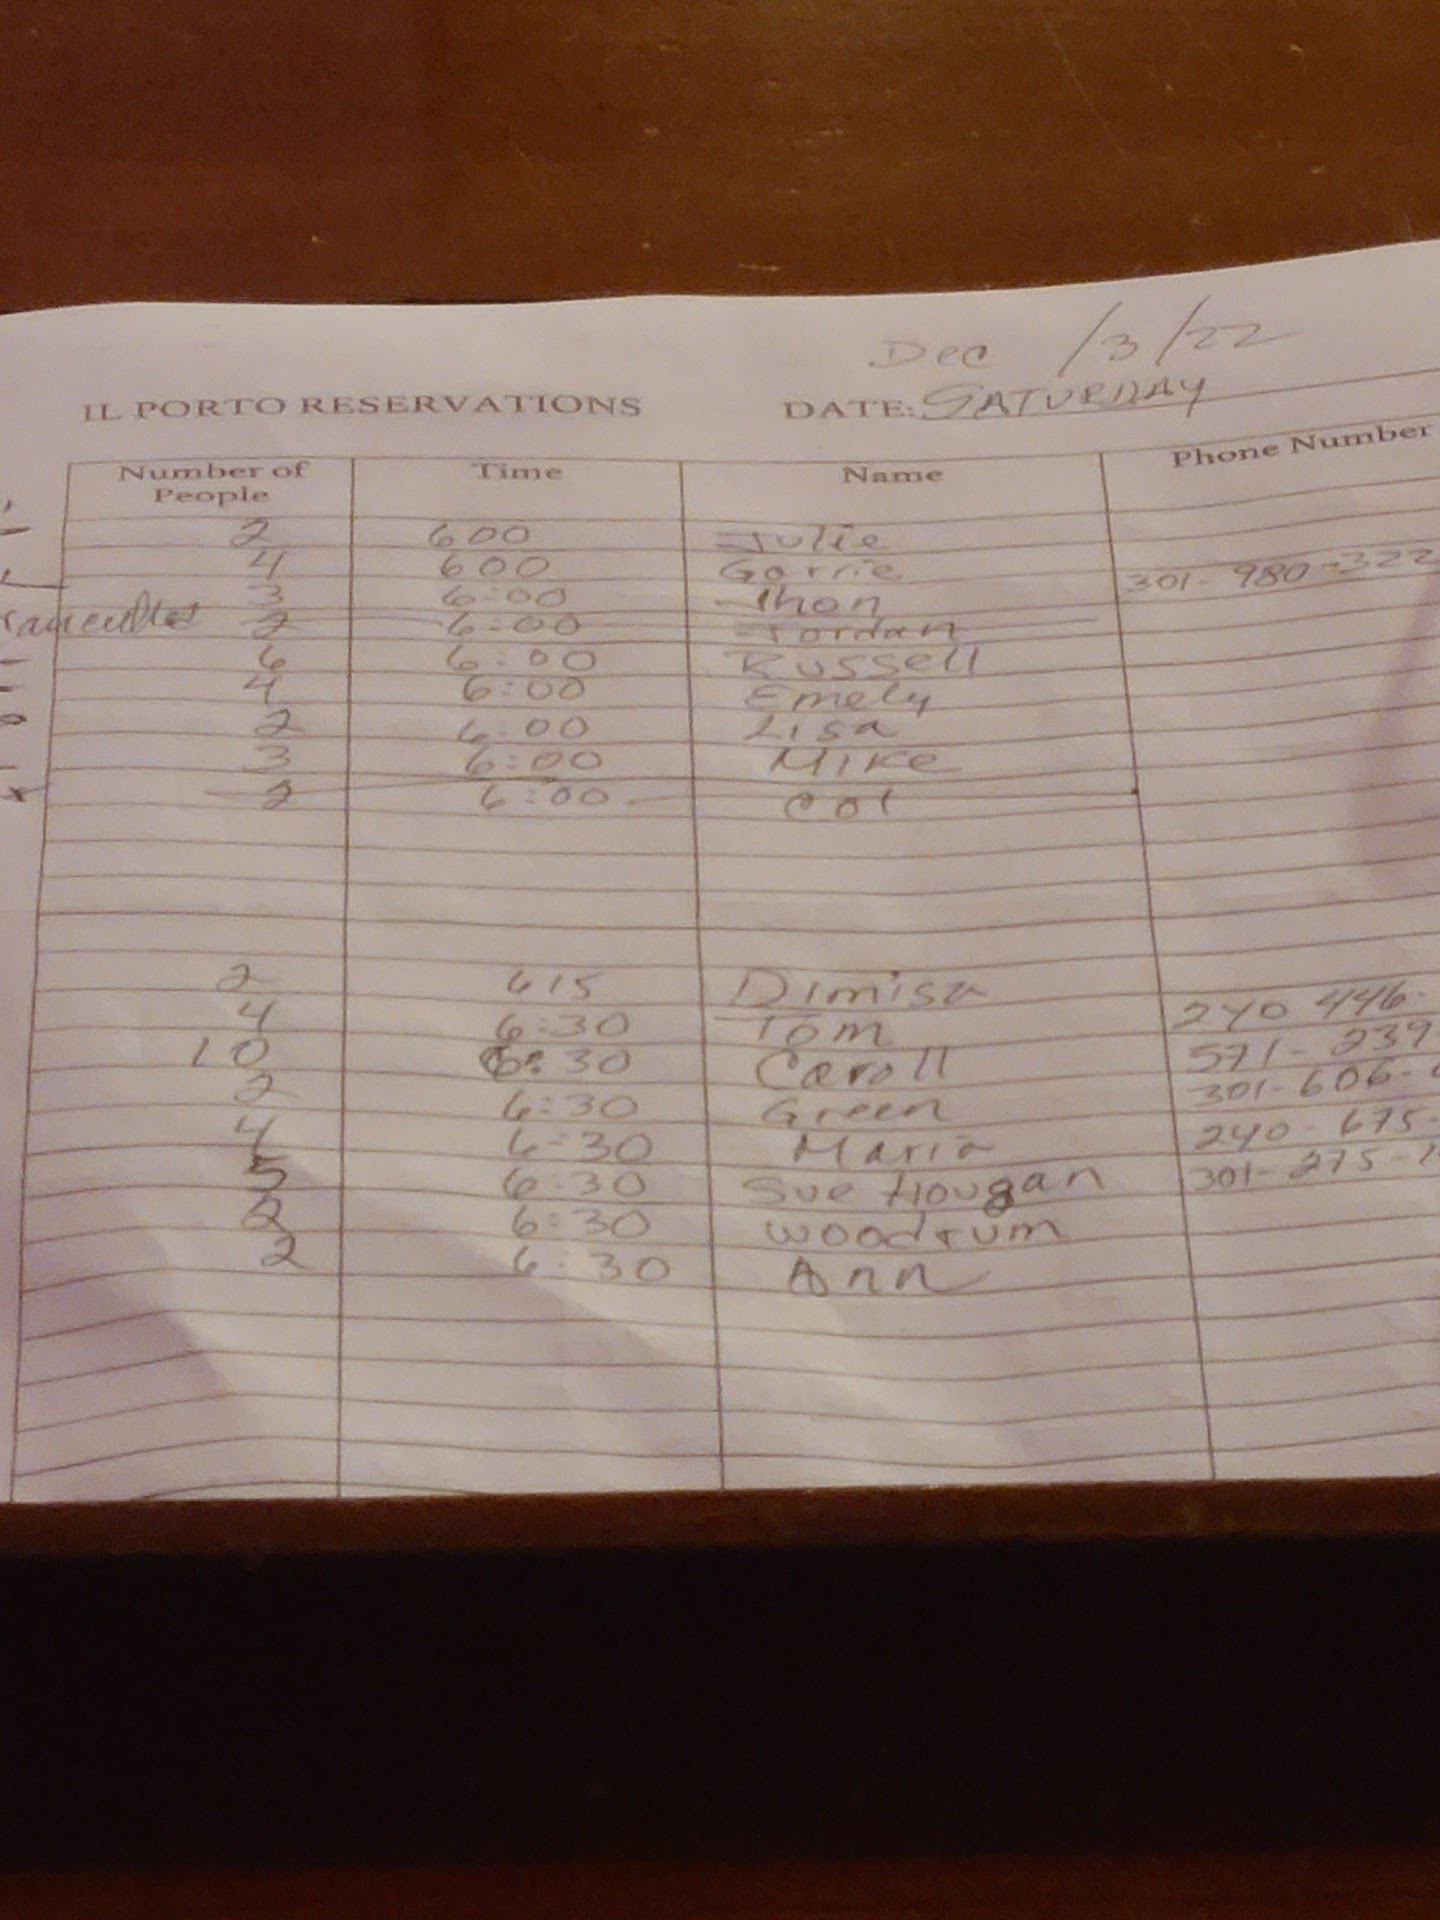 Dec /3/22
IL PORTO RESERVATIONS DATE: SATURDAY
Number of People Time Name Phone Number
2 600 Julie
4 600 Garrie
3 6:00 Jhon 301-980-322
cancelled 2 6:00 Jordan
6 6:00 Russell
4 6:00 Emely
2 6:00 Lisa
3 6:00 Mike
2 6:00 Col
2 615 Dimisa
4 6:30 Tom 240 446-
10 6:30 Caroll 571-239-
2 6:30 Green 301-606-
4 6:30 Maria 240-675-
5 6:30 Sue Hougan 301-275-
2 6:30 Woodrum
2 6:30 Ann